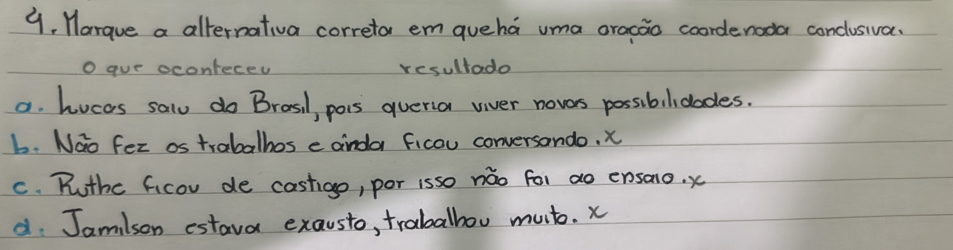 4. Marque a alternativa correta em que há uma oração coordenada conclusiva.
o que aconteceu resultado
a. Lucas saiu do Brasil, pois queria viver novas possibilidades.
b. Não fez os trabalhos e ainda ficou conversando. x
c. Ruthe ficou de castigo, por isso não foi ao ensaio. x
d. Jamilson estava exausto, trabalhou muito. x